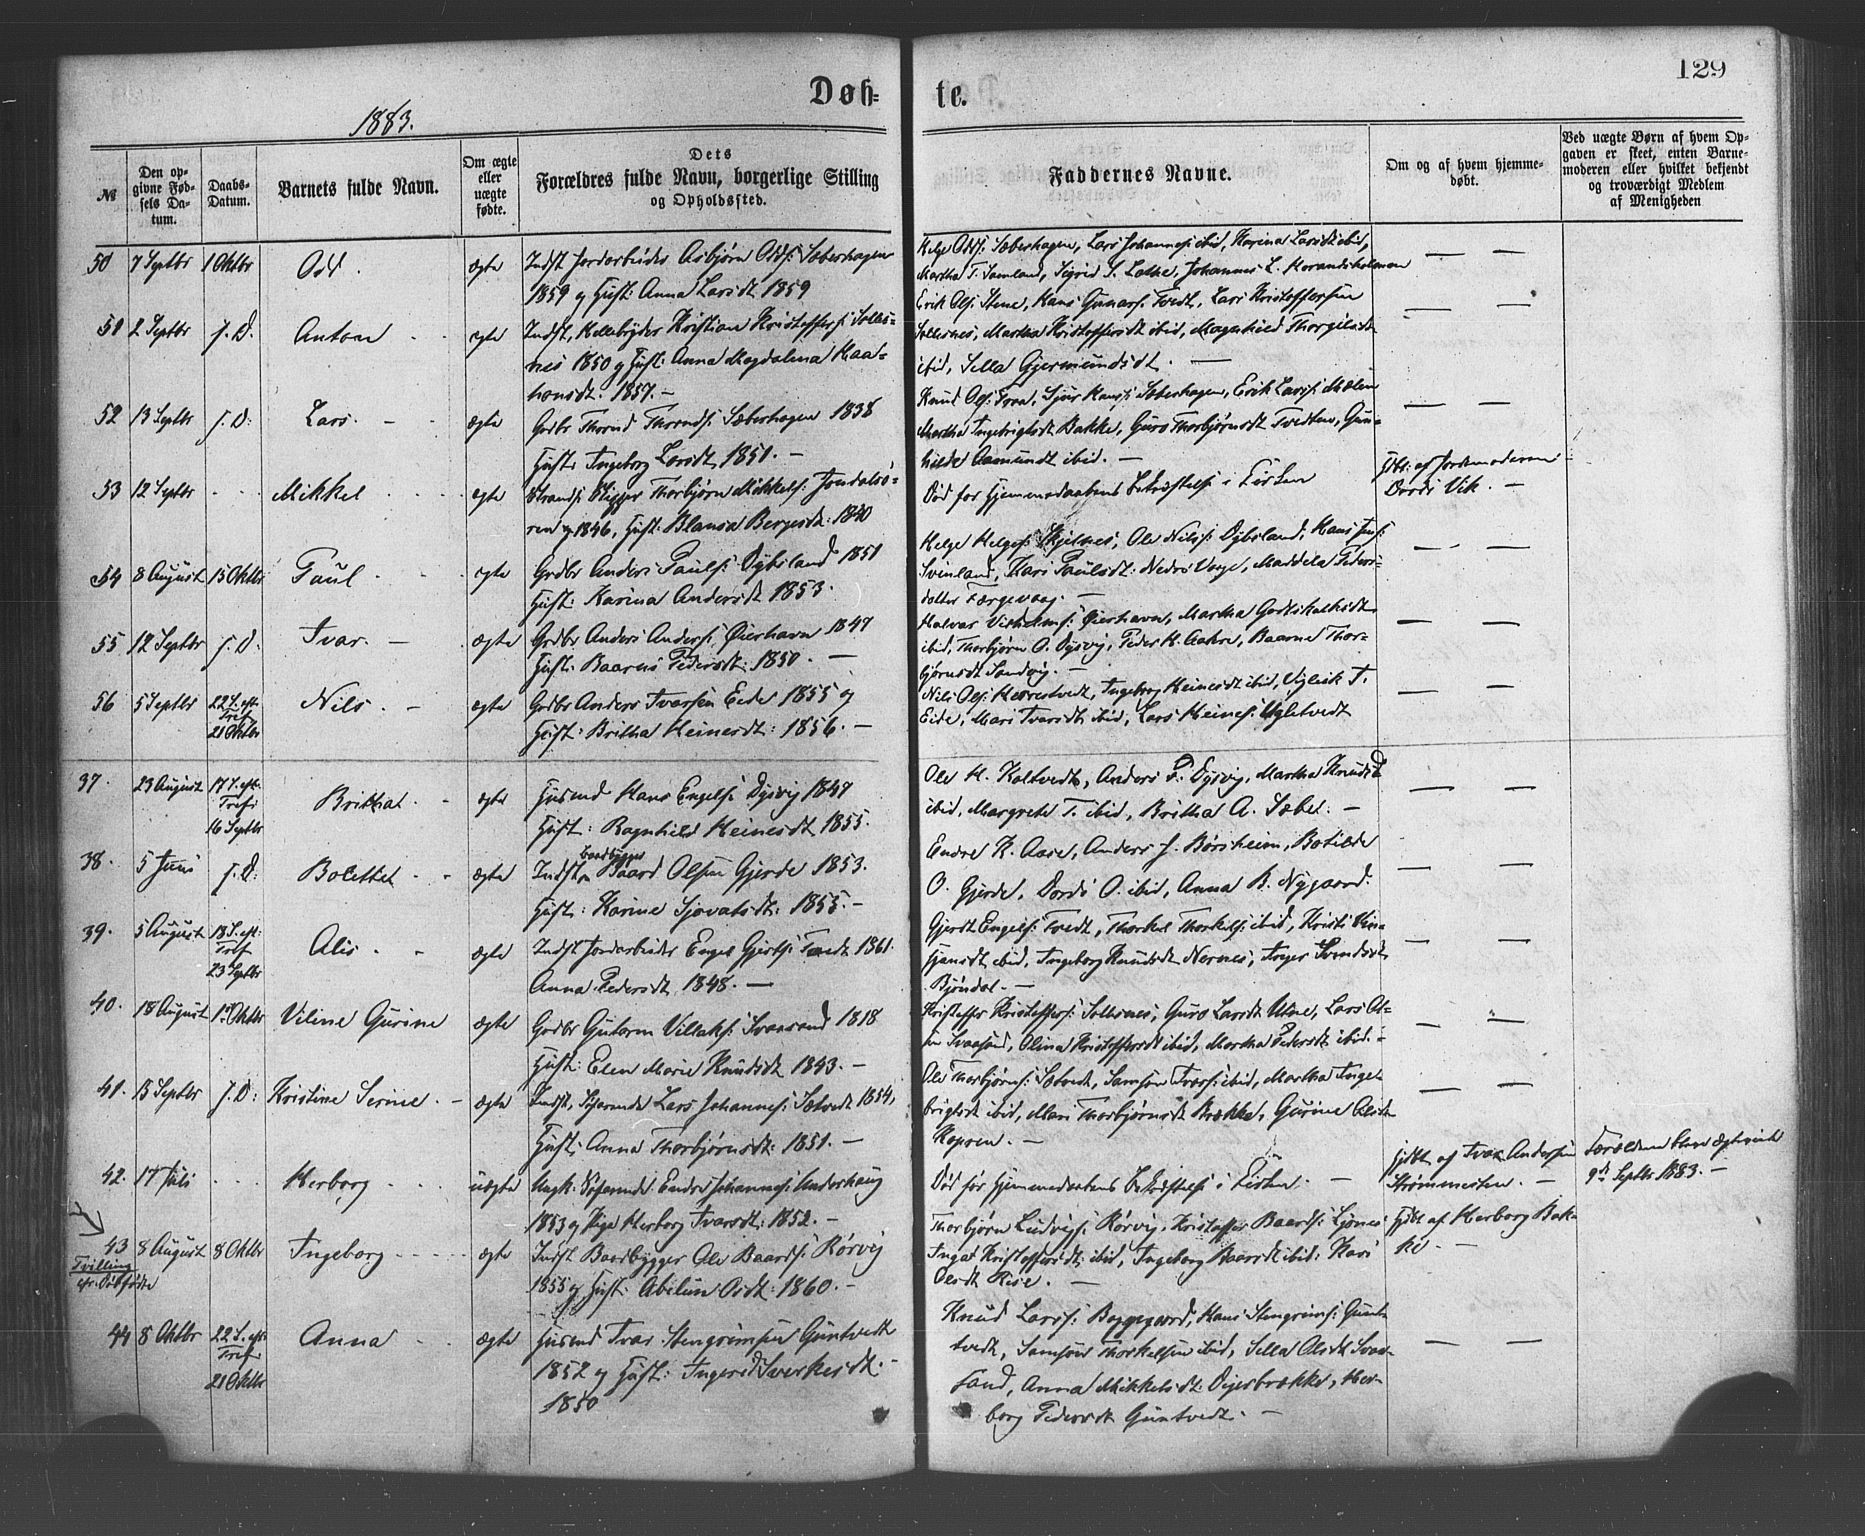 129
Døb=
te.
1883.
№
Den opgivne Fødsels Datum.
Daabs-Datum.
Barnets fulde Navn.
Om ægte eller uægte fødte.
Dets
Forældres fulde Navn, borgerlige Stilling
og Opholdssted.
Faddernes Navne.
Om og af hvem hjemmedøbt.
Ved uægte Børn af hvem Opgaven er skeet, enten Barnemoderen eller hvilket bekjendt og troværdigt Medlem af Menigheden
50 7 Septbr 1 Oktbr Odd. ægte Indst Jordarbeider Asbjørn Odds: Sæberhagen
1859 og Hust: Anna Larsdt 1859
Helge Odds: Sæberhagen, Lars Johannes: ibid, Karina Larsdt ibid,
Martha T. Samland, Sigrid S. Lothe, Johannes L. Morandsholmen
51 2 Septbr J. D. Anton ægte Indst, Kristian Kristoffers: Solles-
nes 1850 og Hust: Anna Magdalena Haa-
konsdt: 1857.
Erik Ols: Stene, Hans Gunnars: Tvedt, Lars Kristoffersen
Sollesnes, Martha Kristoffersdt ibid, Magnhild Thorgilsdt
ibid, Sella Gjermundsdt.
52 13 Septbr J. D: Lars. ægte Grdbr Thormd Thormds: Sæberhagen 1838
Hust: Ingeborg Larsdt 1851.
Knud Ols: Traa, Sjur Hans: Sæberhagen, Erik Lars: Mælen
Martha Ingebrigtsdt Bakke, Guro Thorbjørnsdt Tvedten, Gun-
hilde Aamundt ibid.
53 12 Septbr Mikkel ægte Strands: Thorbjørn Mikkels: Jondalsö-
ren 1846, Hust: Blansa Bergesdt: 1840
Død før Hjemmedaabens Bekræftelse i Kirken
Hjdbt: af Jordemoderen
Dordi Vik.
54 8 August 15 Oktbr Paul ægte Grdbr Anders Pauls: Dybsland 1851
Hust: Karina Andersdt 1853.
Helge Helges: Skjelnes, Ole Nils: Dybsland, Hans Jens:
Svinland, Kari Paulsdt: Nedre Vage, Maddela Peders-
datter Færgevaag.
55 12 Septbr J. D: Ivar. ægte Grdbr Anders Anders: Øierhavn 1847
Hust: Baaren Pedersdt: 1850.
Halvar Vilhelms: Øierhavn, Martha Godtskalksdt
ibid, Thorbjørn O. Dysvig, Peder H. Aakre, Baarne Thor-
bjørnsdt Sandvig.
56 5 Septbr 22 S. eft: Tref. 21 Oktbr Nils. ægte Grdbr Anders Ivarsen Eide 1855 og
Hust: Britha Heinesdt: 1856.
Nils Ols: Herrestvedt, Ingeborg Heinesdt ibid, Viglik T.
Eide, Mari Ivarsdt ibid, Lars Heines: Ugletvedt
37. 23 August 17 S. eft: Tref: 16 Septbr Brithat ægte Husmd Hans Engels: Dysvig 1847
Hust: Ragnhild Heinesdt 1855.
Ole H. Kaltvedt, Anders P. Dysvig, Martha Knudsdt
ibid, Margrete T. ibid, Britha A. Sæbel.
38. 5 Juni J. D: Bolettat ægte Indst, Baadbygger Baard Olsen Gjerde 1853.
Hust: Karine Sjovatsdt: 1855.
Endre K. Aase, Anders J. Børsheim, Botilde
O. Gjerde, Dordi O. ibid, Anna B. Nygaard.
39. 5 August 18 S. eft: Tref 23 Septbr Alis ægte Indst. Jordarbeider Engel Gjerts: Tvedt 1861.
Anna Pedersdt 1848.
Gjerdt Engels: Tvedt, Thorkel Thorkels: ibid, Kristi Vin-
tjansdt ibid, Ingeborg Knudsdt Nernes, Inger Svendsdt
Bjöndal.
40. 18 August 1 Oktbr Viline Gurine ægte Grdbr Gutorm Villaks: Svaasand 1818
Hust: Elen Marie Knudsdt 1843.
Kristoffer Kristoffers: Sollesnes, Guro Larsdt Utne, Lars Ol-
sen Svaasand, Olina Kristoffersdt ibid, Martha Pedersdt ibid.
41. 15 Septbr J. D: Kristine Serine. ægte Indst, Lars Johannes: Sætvedt 1854,
Hust: Anna Thorbjørnsdt: 1851.
Ole Thorbjørns: Sætvedt, Samson Ivars: ibid, Martha Inge-
brigtsdt ibid, Mari Thorbjørnsdt Brække, Gurine
Kopren.
42. 17 Juli Herborg uægte Ungk. Søfarende Endre Johannes: Underhaug
1853 og Pige Herborg Ivarsdt: 1852.
Død før Hjemmedaabens Bekræftelse i Kirken.
Hjdbt af Ivar Andersen
Strømmesten.
Forældrene bleve ægteviet
9de Septbr 1883.
43 8 August 8 Oktbr Ingeborg ægte Indst Baadbygger Ole Baards: Rørvig
1855 og Hust: Abelim Osdt: 1860.
Tvilling
cfr. Dødfødte
Thorbjørn Ludvigs: Rørvig, Kristoffer Baards: Ljønes
Ingat Kristoffersdt: ibid, Ingeborg Baardsdt ibid. Kari
Olsdt Rise.
Hjdbt af Herborg Bak-
ke.
44 8 Oktbr 22 S. eft: Tref. 21 Oktbr Anna ægte Husmd Ivar Stengrimsen Guntvedt
1852 og Hust: Ingerid Sverkesdt.
1850
Knud Lars: Byggegaard, Hans Stengrims: Gunt-
tvedt, Samson Thorkelsen ibid, Sella Olsdt Svaa-
sand, Anna Mikkelsdt: Digerbrække, Her-
borg Pedersdt Guntvedt.